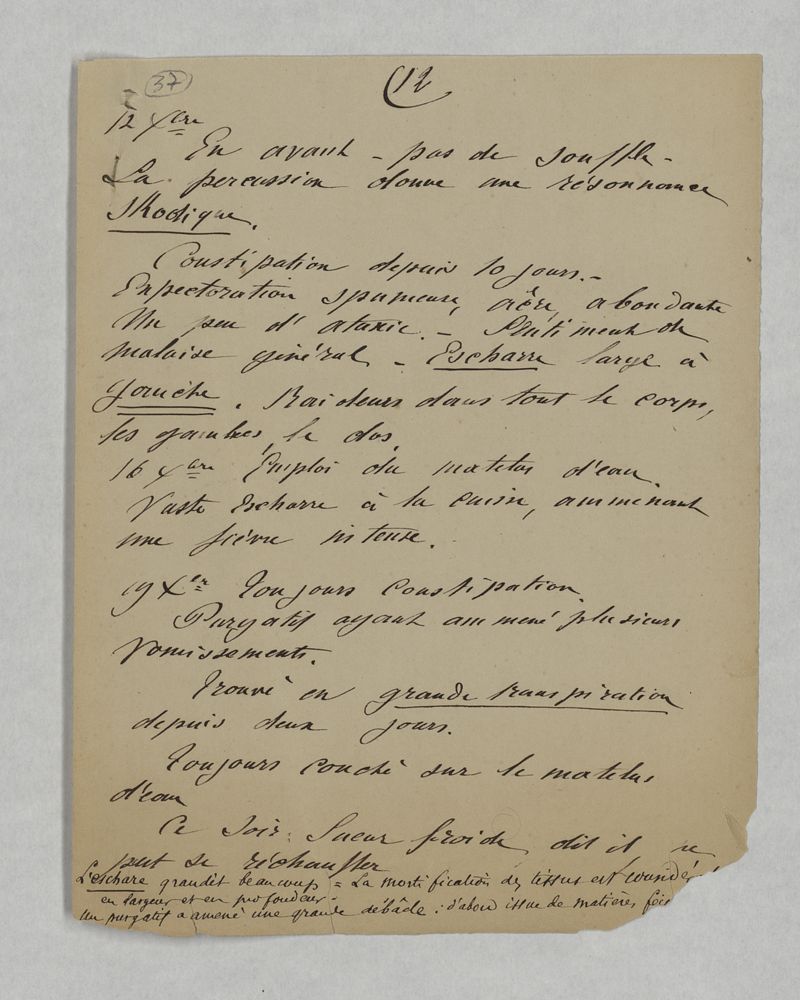 37
12
12 Xbre
En avant - pas de souffle -
La percussion donne une résonnance
Skodique.
Constipation depuis 10 jours. -
Expectoration spumeuse, aëre, abondante
Un peu d'ataxie. - Sentiment de
malaise général - Escharre large à
gauche. Raideurs dans tout le corps,
les jambes, le dos.
16 Xbre Emploi du matelas d'eau.
Vaste Escharre à la cuisse, ammenant
une fièvre intense.
19 Xbre Toujours constipation.
Purgatif ayant ammené plusieurs
vomissements.
Trouvé en grande transpiration
depuis deux jours.
Toujours couché sur le matelas
d'eau
Ce soir: Sueur froide, dit il ne
peut se réchauffer
L'eschare grandit beaucoup = La mortification des tissus est
en largeur et en profondeur -
Un purgatif a amené une grande débâcle : d'abord issue de matières